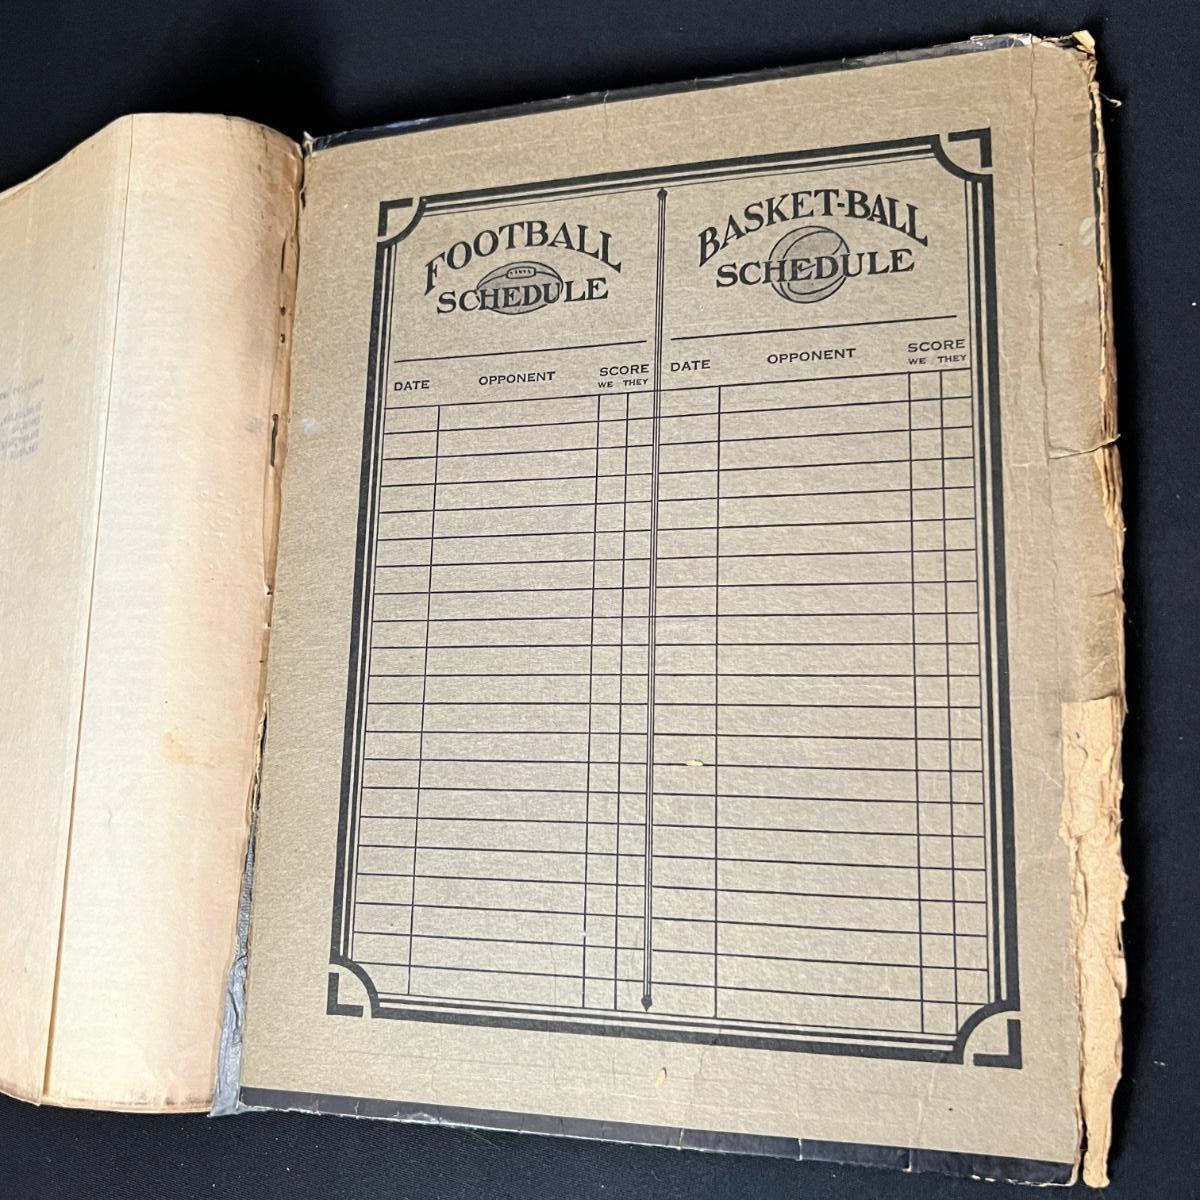 FOOTBALL
SCHEDULE
DATE OPPONENT SCORE
WE THEY
BASKET-BALL
SCHEDULE
DATE OPPONENT SCORE
WE THEY